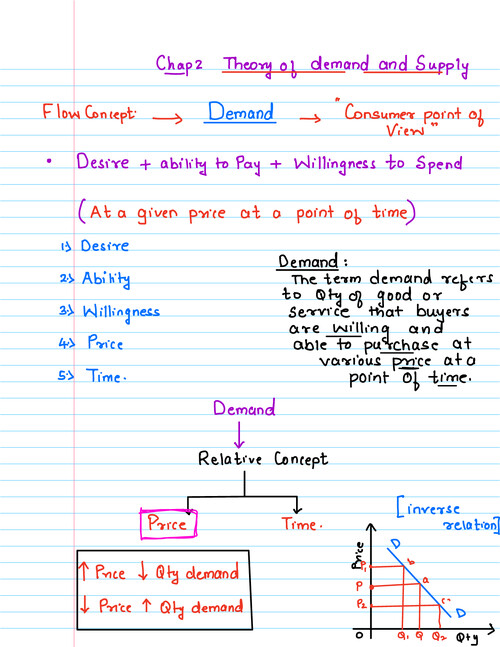 Chap 2 Theory of demand and Supply
Flow Concept. → Demand → "Consumer point of View"
• Desire + ability to Pay + Willingness to Spend
(At a given price at a point of time)
1) Desire
2) Ability
3) Willingness
4) Price
5) Time.
Demand:
The term demand refers
to Qty of good or
service that buyers
are willing and
able to purchase at
various price at a
point of time.
Demand
Relative Concept
Price
Time.
↑ Price ↓ Qty demand
↓ Price ↑ Qty demand
[inverse
relation]
Price
D
P1 b
P a
P2 c
D
O Q1 Q Q2 Qty